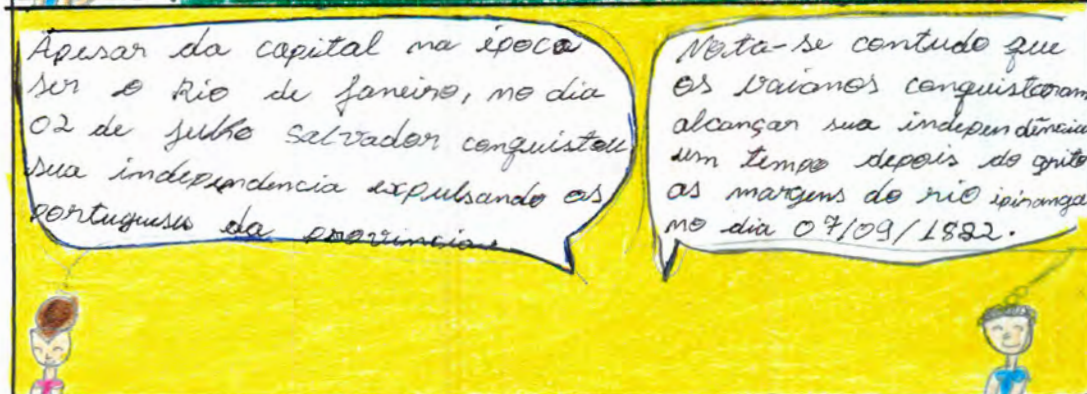 Apesar da capital na época
ser o Rio de Janeiro, no dia
02 de julho Salvador conquistou
sua independencia expulsando os
portugueses da provincia.
Nota-se contudo que
os baianos conquistaram
alcançar sua independência
um tempo depois do grito
as margens do rio ipiranga
no dia 07/09/1822.